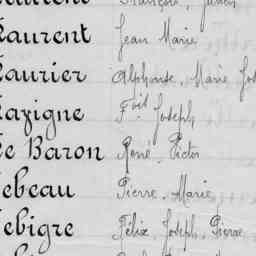 Laurent Jean Marie
Laurier Alphonse, Marie Jos
Lavigne F.bit Joseph
Le Baron René, Victor
Lebeau Pierre, Marie
Lebigre Félix, Joseph, Pierre